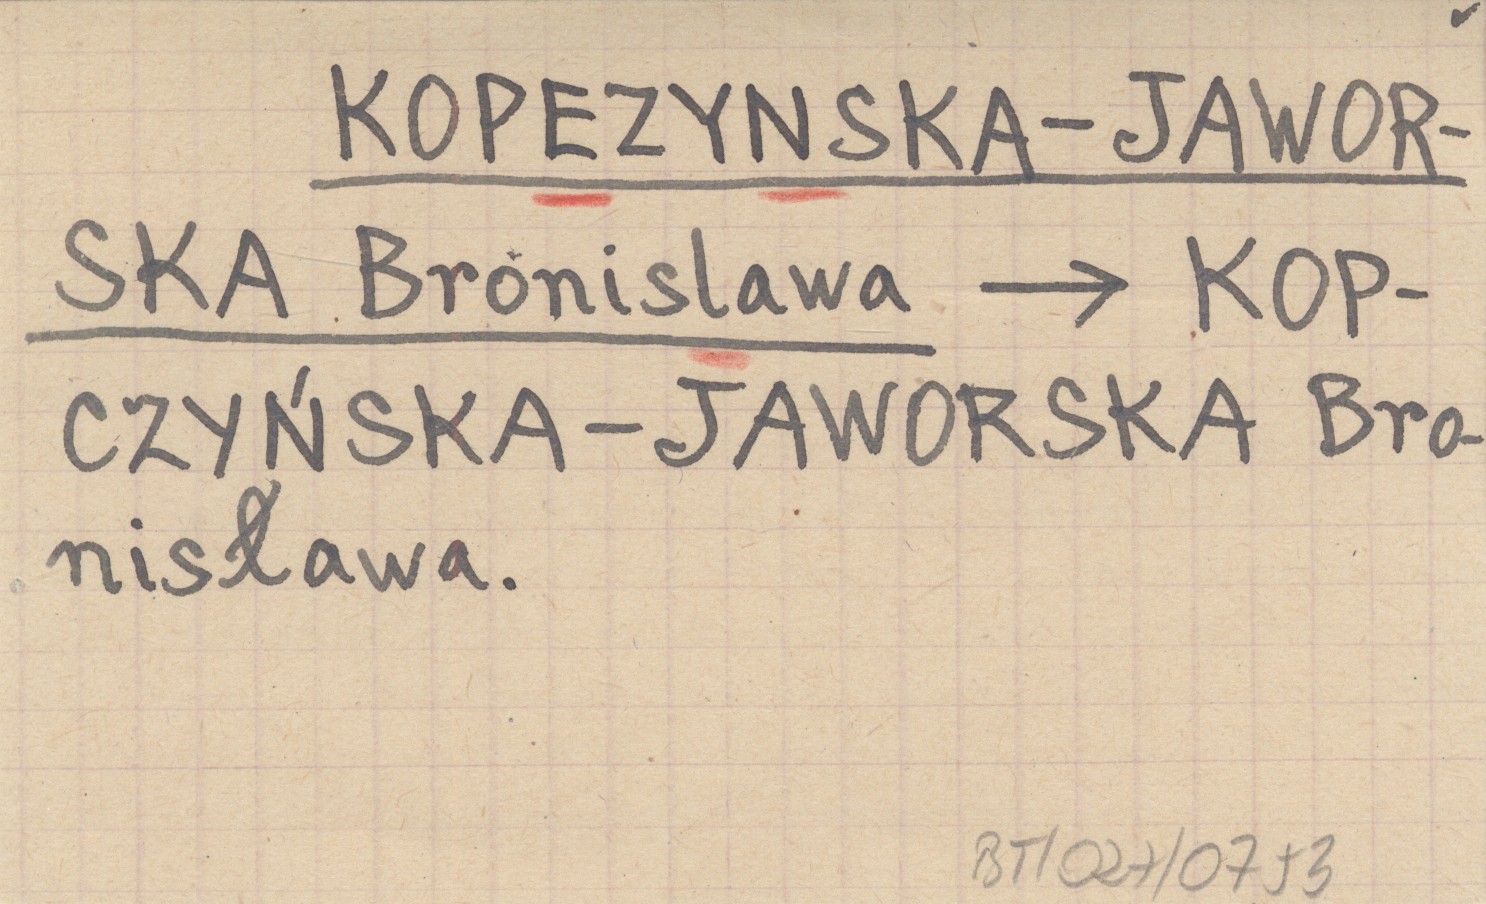 KOPEZYNSKA-JAWOR-
SKA Bronislawa → KOP-
CZYŃSKA-JAWORSKA Bro-
nisława.
BT/027/0753